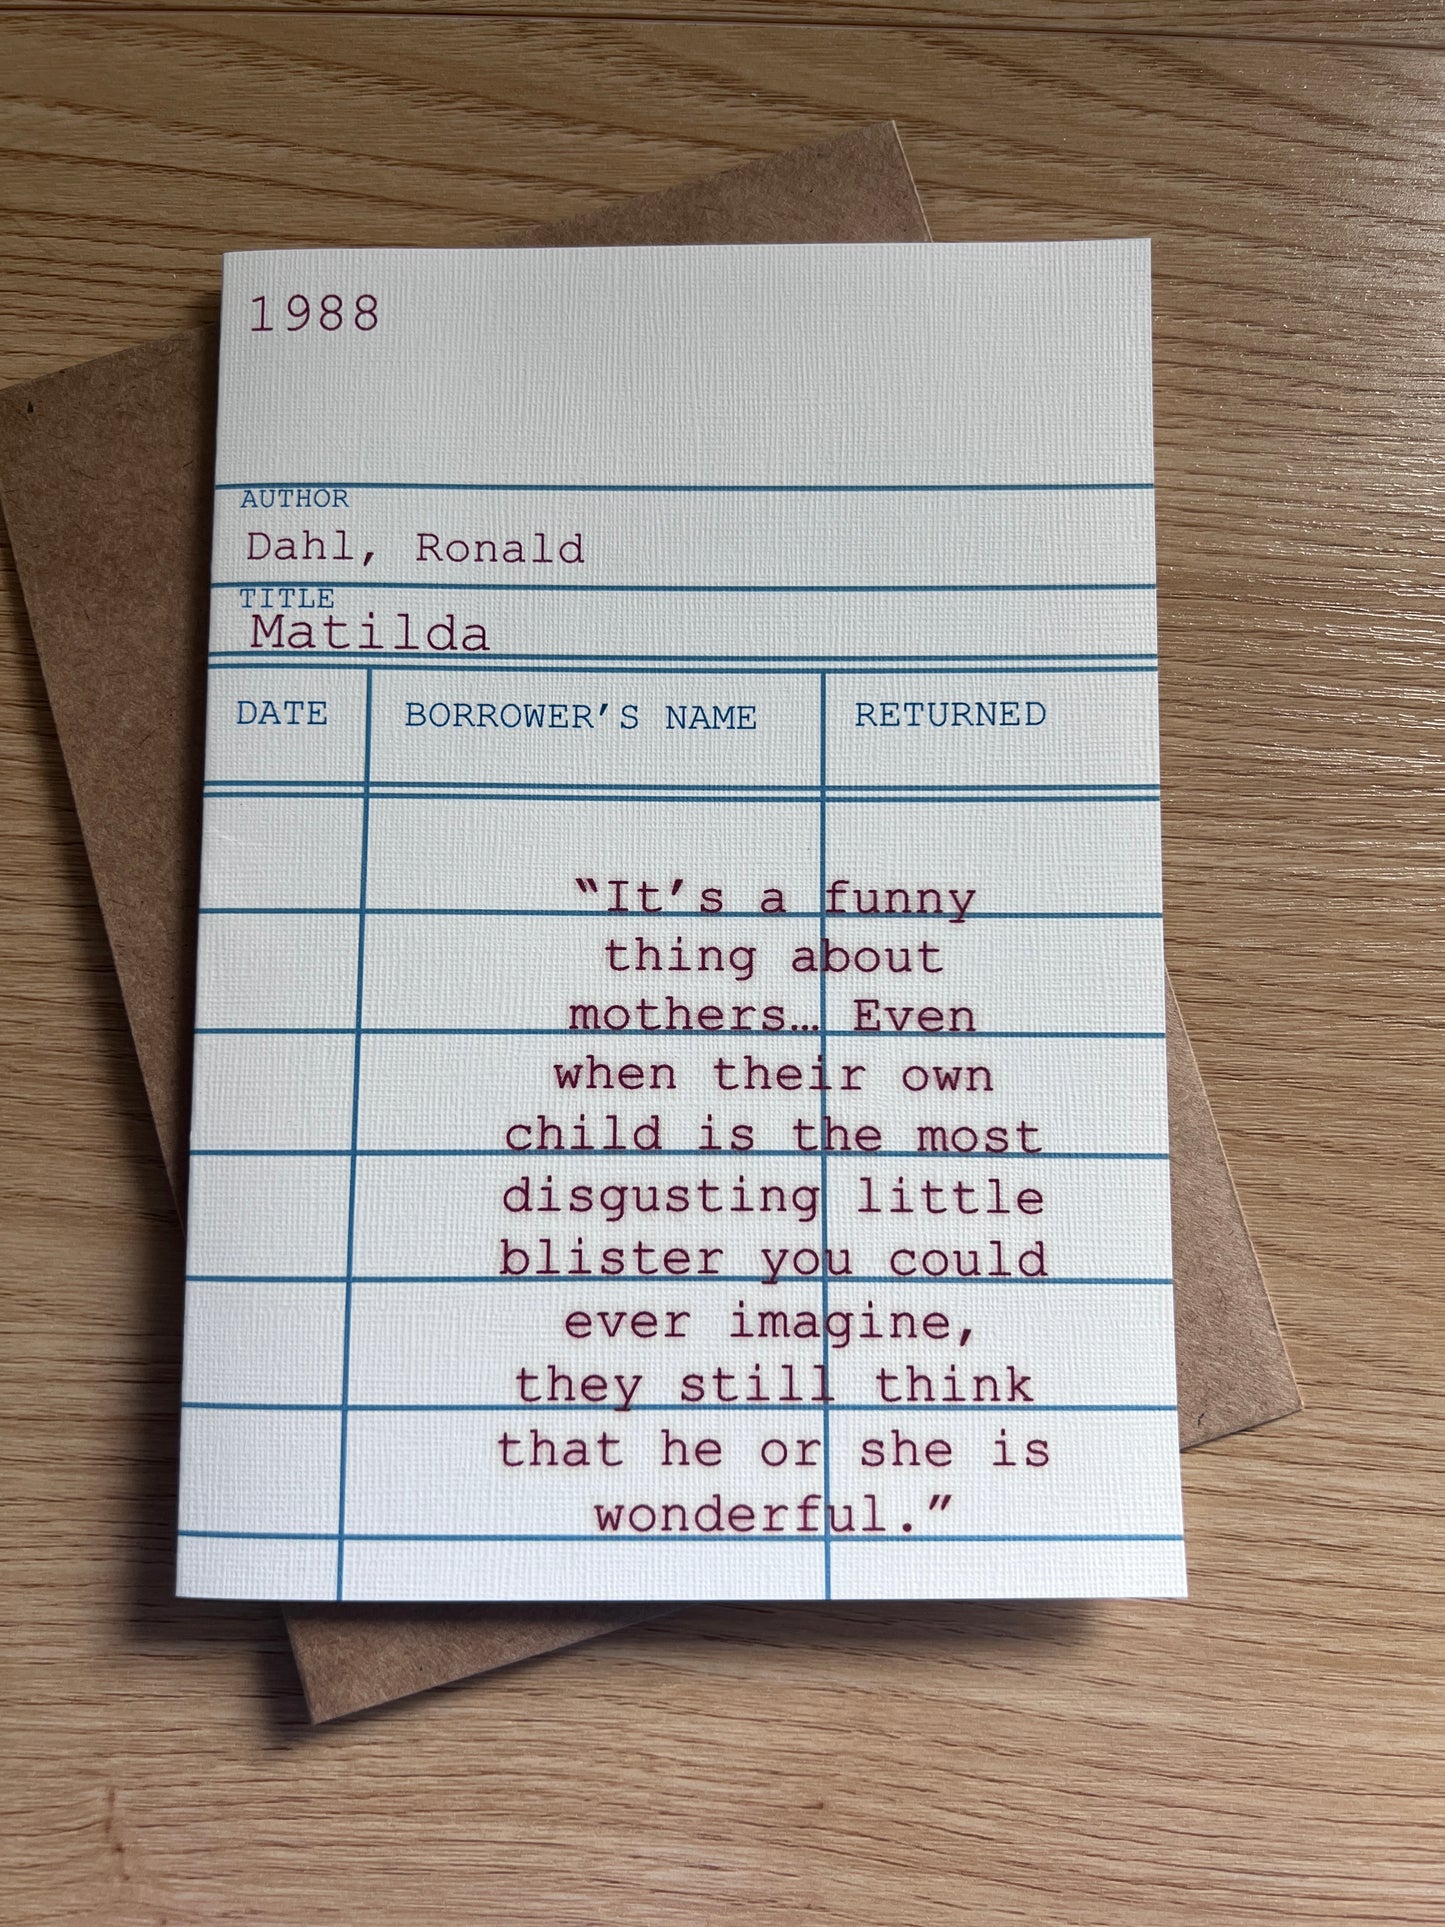 1988
AUTHOR
Dahl, Ronald
TITLE
Matilda
DATE BORROWER'S NAME RETURNED
"It's a funny
thing about
mothers… Even
when their own
child is the most
disgusting little
blister you could
ever imagine,
they still think
that he or she is
wonderful."